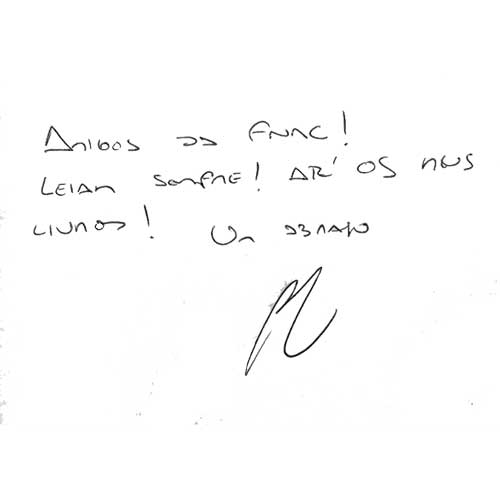 Amigos da FNAC!
LEIAM SEMPRE! ATÉ OS MEUS
LIVROS! Um abraço